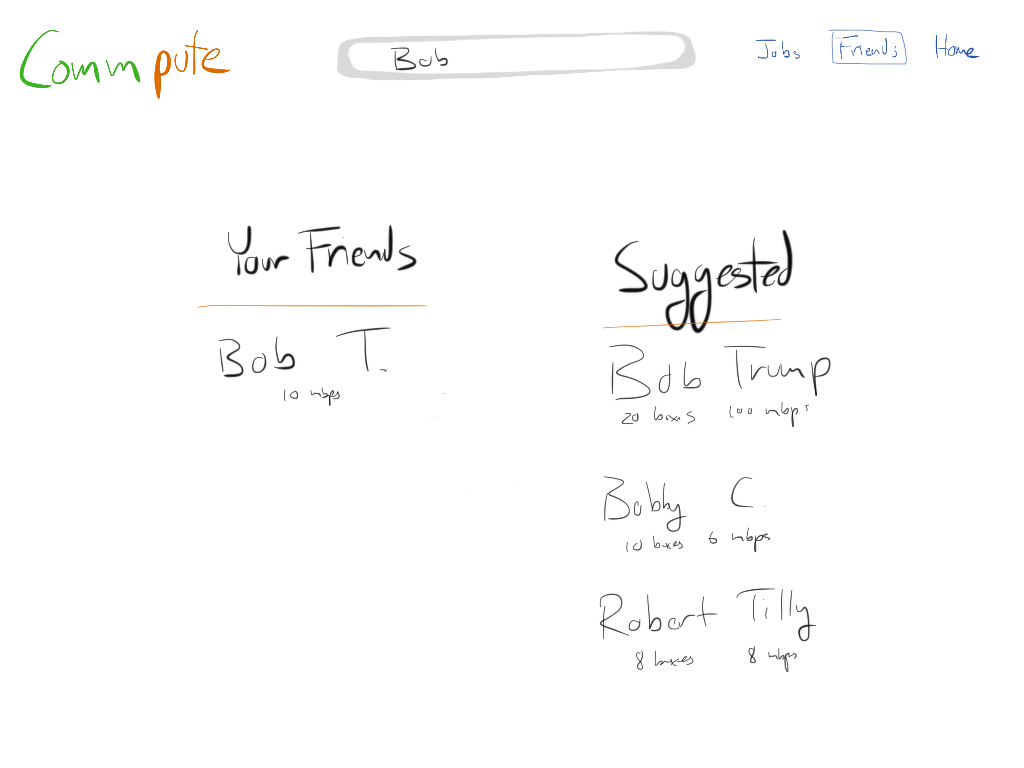 Commpute
Bob
Jobs Friends Home
Your Friends
Bob T.
10 mbps
Suggested
Bob Trump
20 boxes 100 mbps
Bobby C.
10 boxes 6 mbps
Robert Tilly
8 boxes 8 mbps